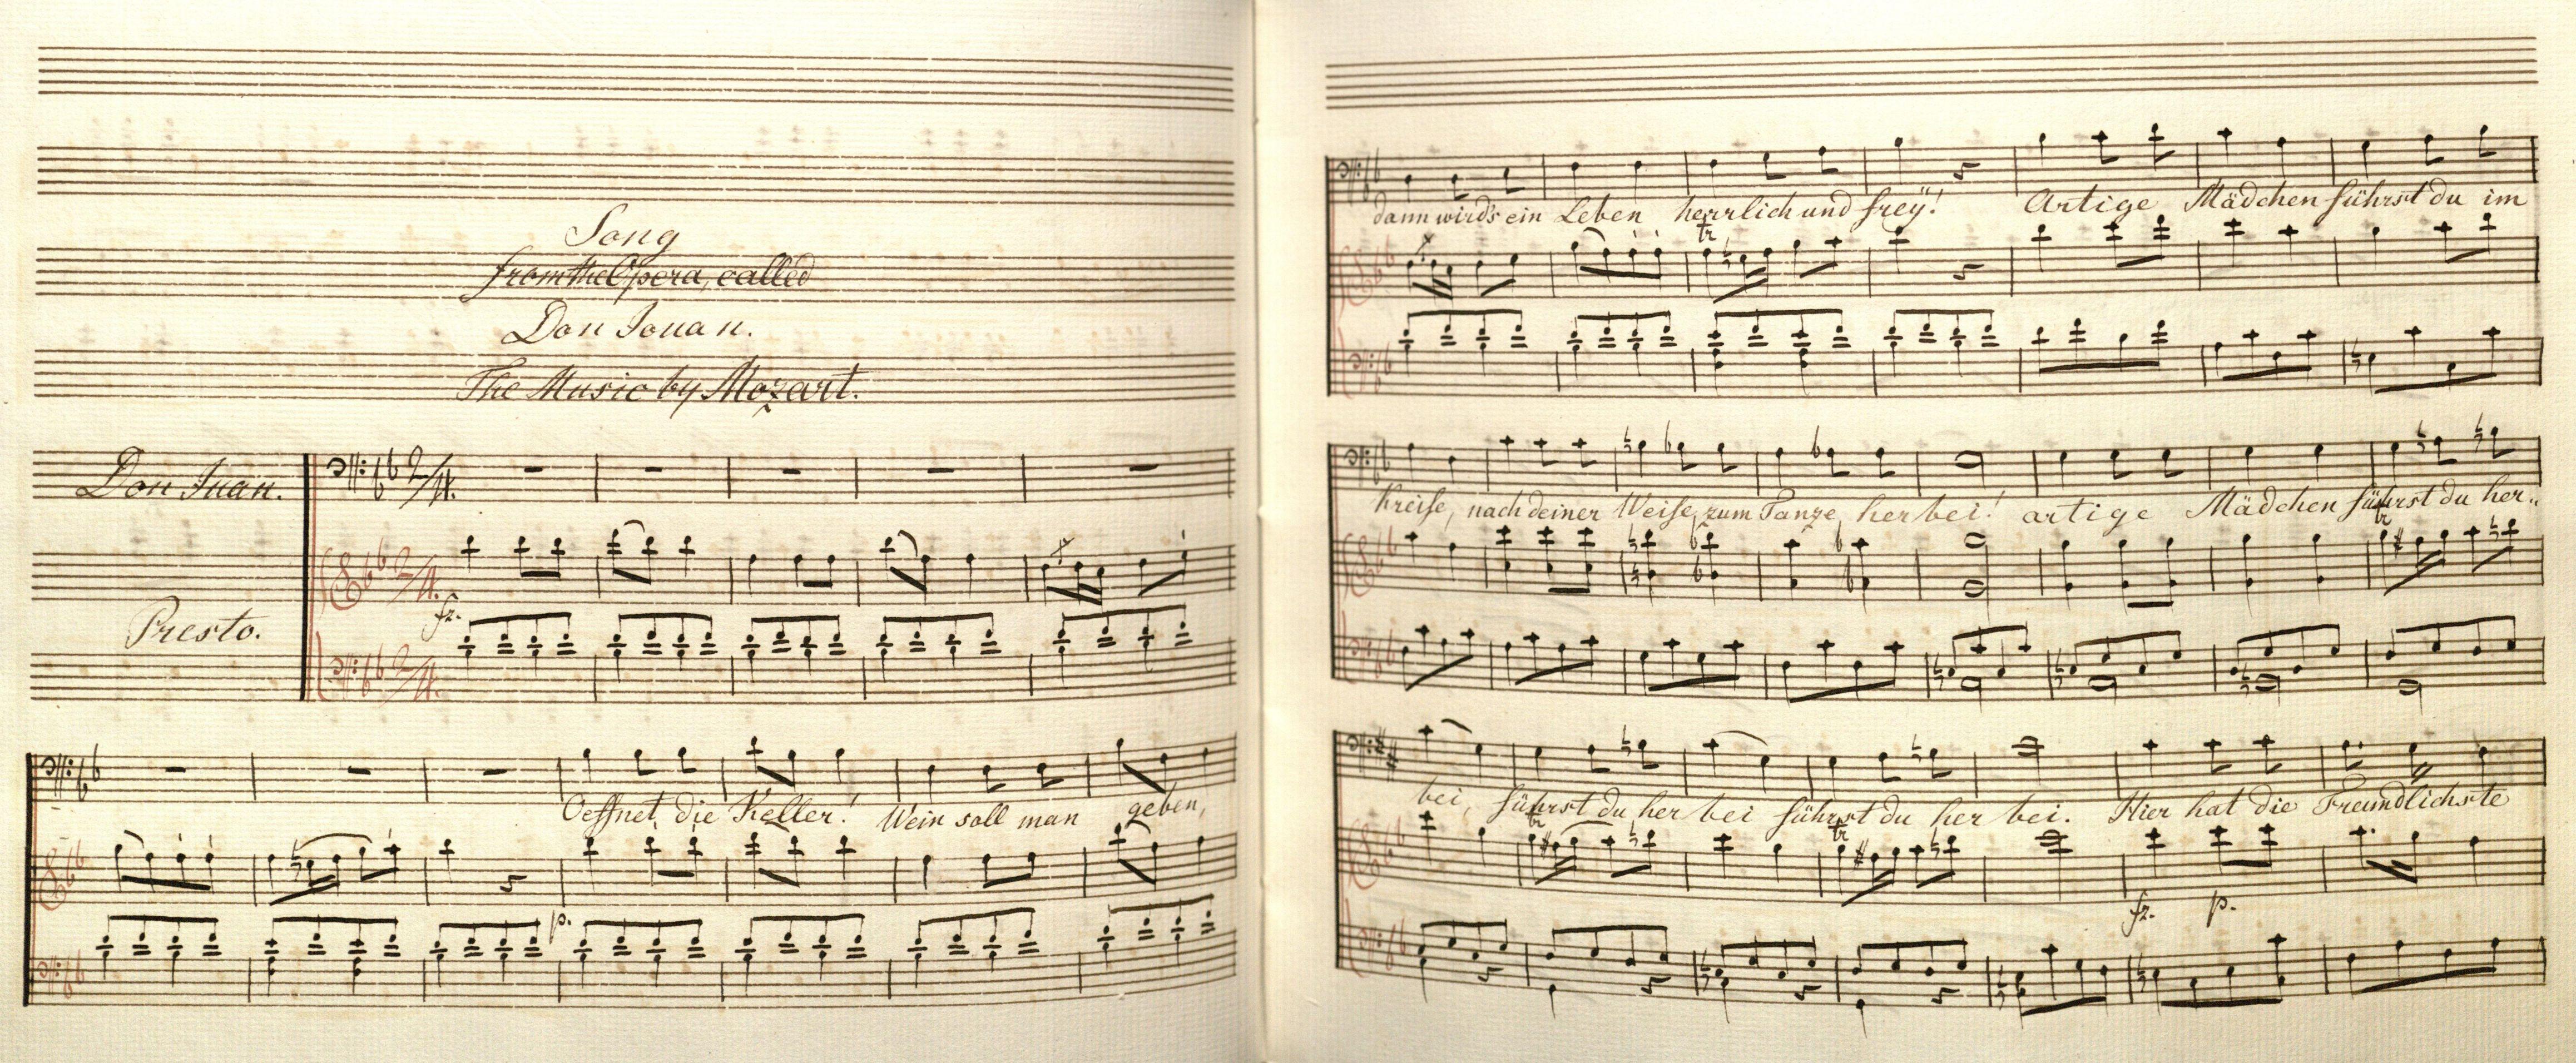 Song
from the Opera, called
Don Jouan.
The Music by Mozart.
Don Juan.
fz.
Presto.
Oeffnet die Keller! Wein soll man geben,
p.
dann wird's ein Leben herrlich und freÿ! Artige Mädchen führst du im
tr
Kreise, nach deiner Weise, zum Tanze, herbei! artige Mädchen führst du her..
tr
bei, führst du her bei führst du her bei. Hier hat die Freundlichste
tr tr
fz. p.